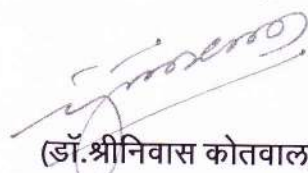 (डॉ.श्रीनिवास कोतवाल